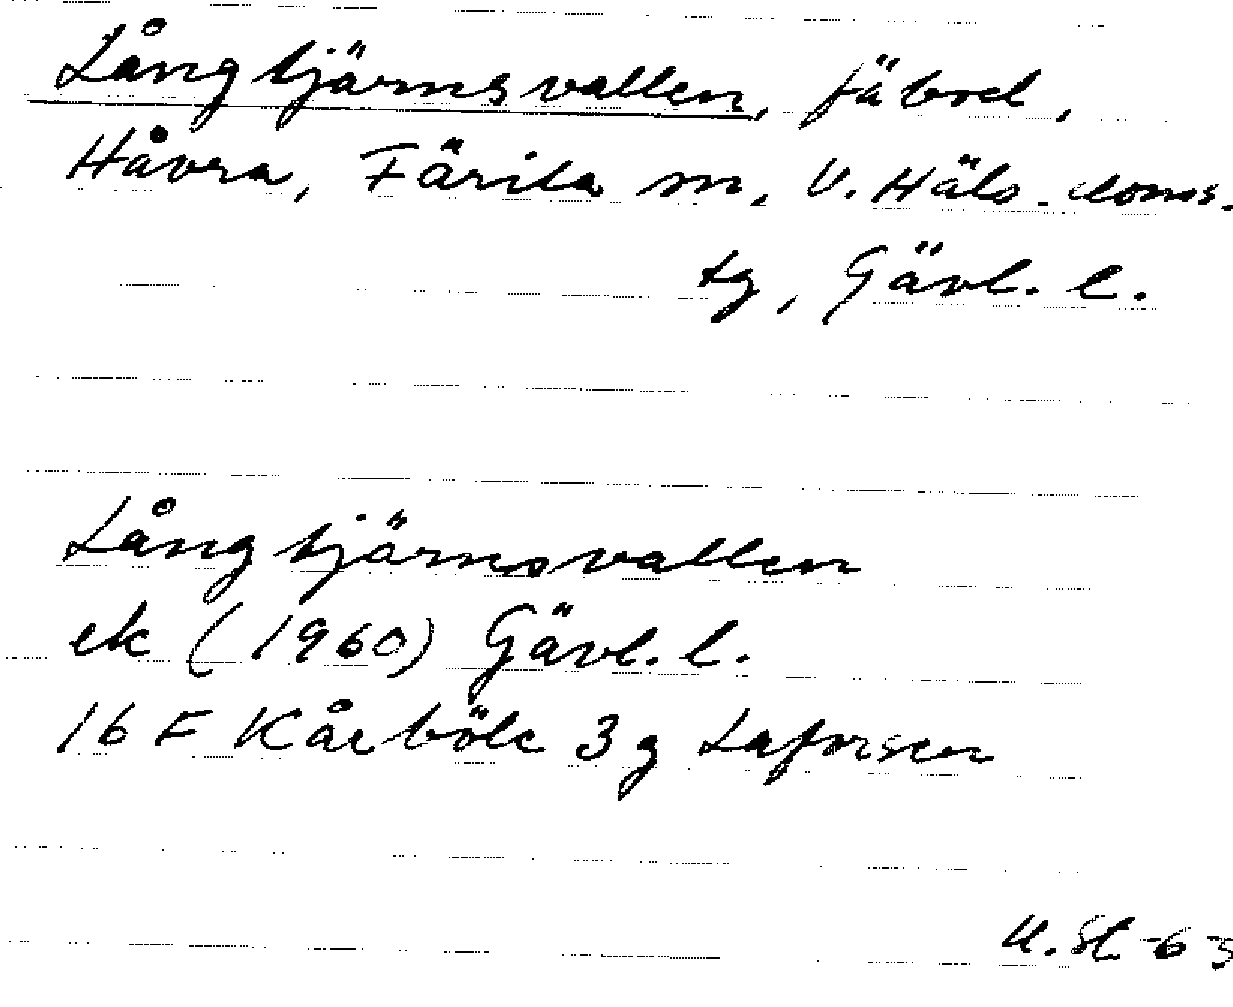 Långtjärnsvallen, fäbod,
Håvra, Färila sn, V. Häls. doms.
tg, Gävl. l.
Långtjärnsvallen
ek (1960) Gävl. l.
16 F Kårböle 3 g Laforsen
-63